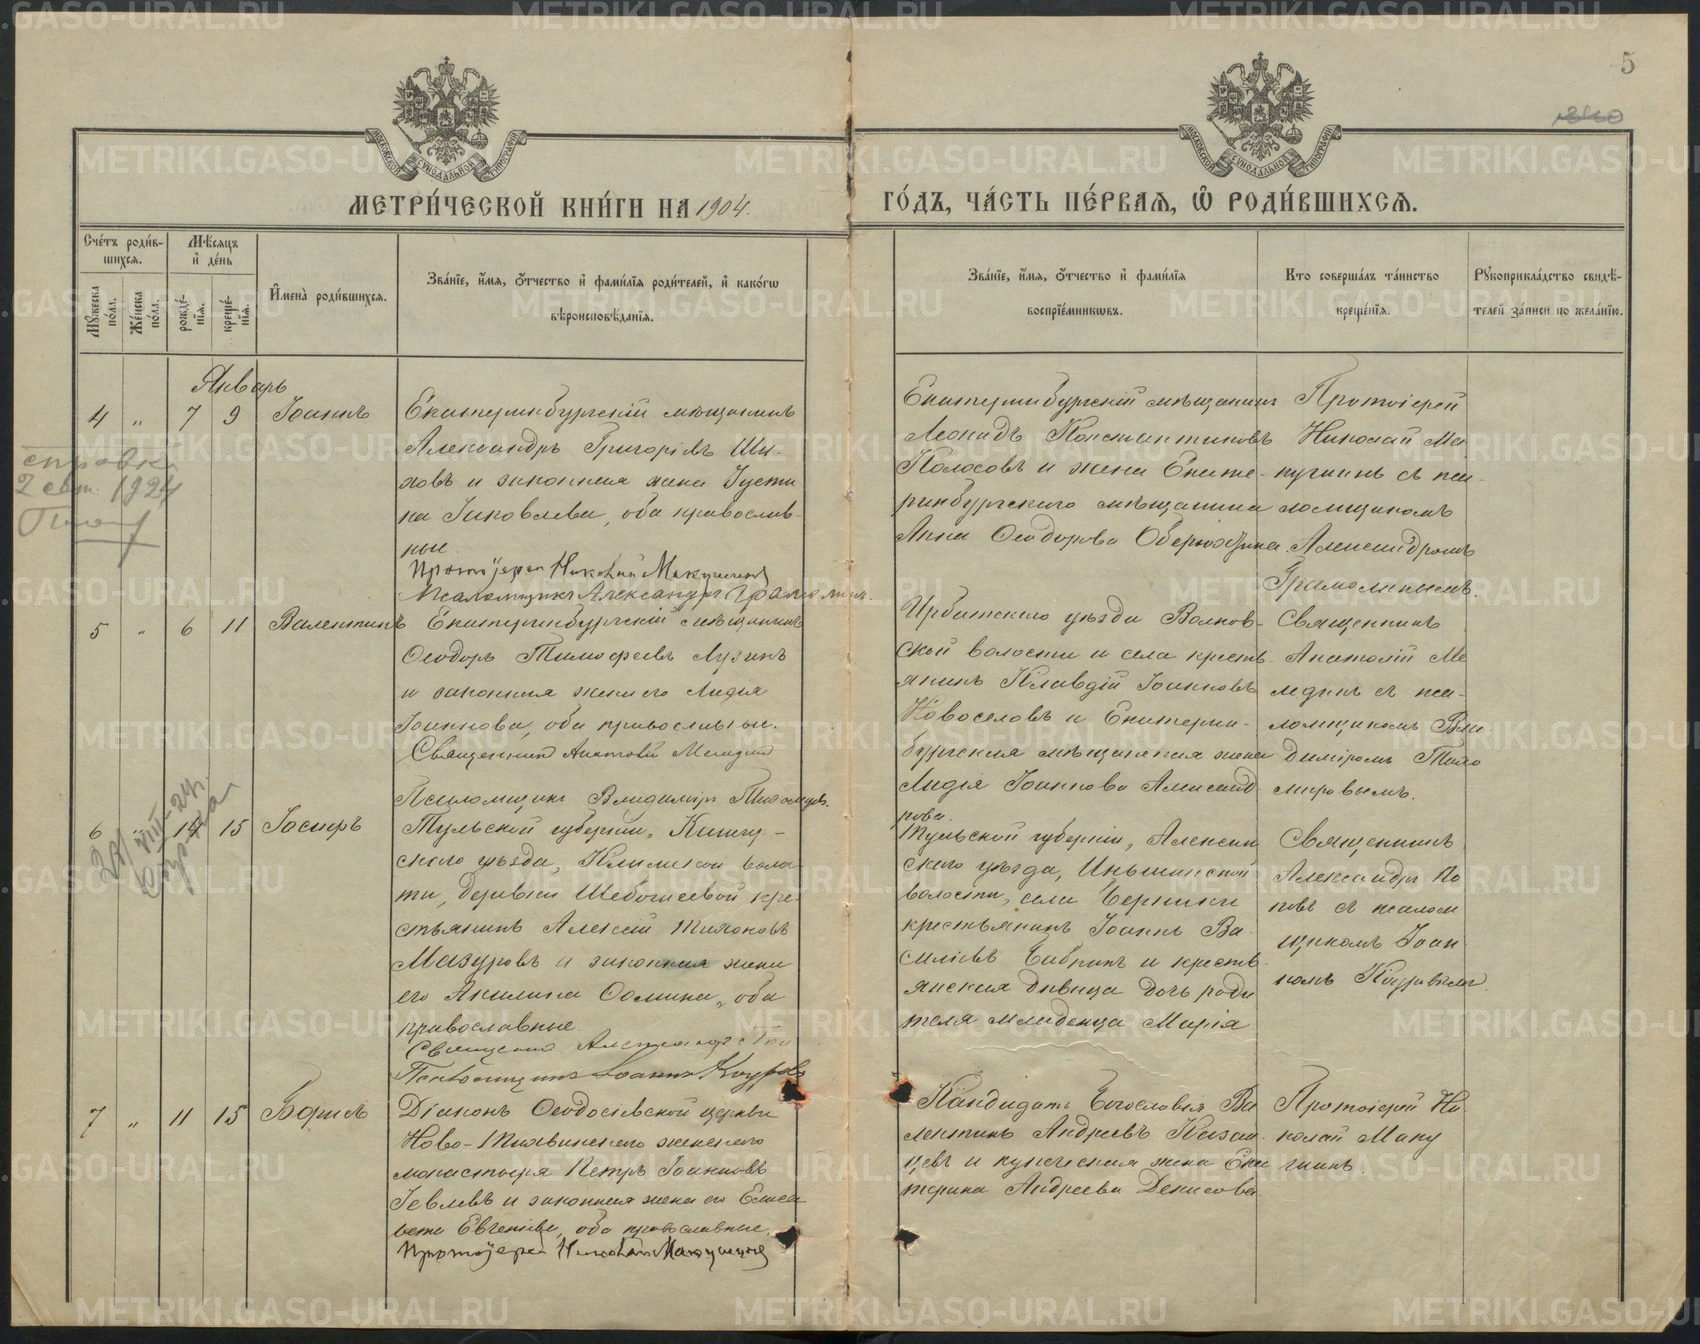 5
МЕТРИ́ЧЕСКОЙ КНИ́ГИ НА 1904.
ГО́ДЪ, ЧА́СТЬ ПЕ́РВАЯ, Ѡ РОДИ́ВШИХСЯ.
Сче́тъ роди́в-
шихся.
Мѣ́сяцъ
и҆ де́нь
Мꙋ́жеска
по́ла.
Же́нска
по́ла.
рожде́-
нїя.
креще́-
нїя.
И҆мена̀ роди́вшихся.
Зва́нїе, и҆́мя, ѻ҆́тчество и҆ фами́лїя роди́телей, и҆ како́гѡ
вѣроисповѣ́данїя.
Зва́нїе, и҆́мя, ѻ҆́тчество и҆ фами́лїя
воспрїе́мникѡвъ.
Кто соверша́лъ та́инство
креще́нїя.
Рꙋкоприкла́дство свидѣ́-
телей за́писи по жела́нїю.
Январь
4 „ 7 9 Іоаннъ
Екатеринбургскій мѣщанинъ
Александръ Григоріевъ Ши-
ховъ и законная жена Іусти
на Іаковлева, оба православ-
ные.
Протоіерей Николай Макушинъ
Псаломщикъ Александръ Грамолинъ.
Екатеринбургскій мѣщанинъ
Леонидъ Константиновъ
Колосовъ и жена Екате-
ринбургскаго мѣщанина
Анна Ѳеодорова Оберюхтина.
Протоіерей
Николай Ма
кушинъ съ пса-
ломщикомъ
Александромъ
Грамолинымъ.
справка
2 сент. 1924
5 „ 6 11 Валентинъ
Екатеринбургскій мѣщанинъ
Ѳеодоръ Тимофеевъ Лузинъ
и законная жена его Лидія
Іоаннова, оба православные.
Священникъ Анатолій Меледин
Псаломщикъ Владиміръ Тихомиров.
Ирбитскаго уѣзда Волков-
ской волости и села кресть-
янинъ Клавдій Іоанновъ
Новоселовъ и Екатерин-
бургская мѣщанская жена
Лидія Іоаннова Александ-
рова.
Священникъ
Анатолій Ме
лединъ съ пса-
ломщикомъ Вла
диміромъ Тихо
мировымъ.
6 „ 14 15 Іосифъ
Тульской губерніи, Каширс-
скаго уѣзда, волос-
ти, деревни кре-
стьянинъ Алексій Тихоновъ
Мазуровъ и законная жена
его Акилина Ѳомина, оба
православные
Священник Александръ Поп
Псаломщикъ Іоаннъ
Тульской губерніи, Алексин
скаго уѣзда,
волости, села
крестьянинъ Іоаннъ Ва-
силіевъ и кресть-
янская дѣвица дочь роди
теля младенца Марія
Священникъ
Александръ По
повъ съ псалом
щикомъ Іоан
номъ
7 „ 11 15 Борисъ
Діаконъ Ѳеодосіевской церкви
Ново-Тихвинскаго женскаго
монастыря Петръ Іоанновъ
Іевлевъ и законная жена его Елиса
вета Евгеніева, оба православные.
Протоіерей Николай Макушинъ
Кандидатъ Богословія Ва
лентинъ Андреевъ Казан-
цевъ и купеческая жена Ека
терина Андреева Денисова.
Протоіерей Ни
колай Маку
шинъ.
METRIKI.GASO-URAL.RU